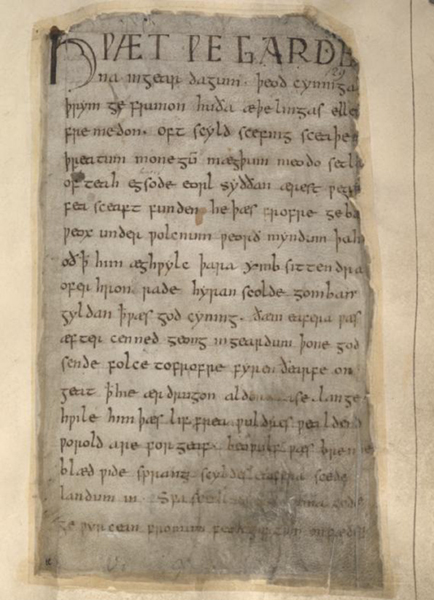 HǷÆT ǷE GARDE
na ingear dagum · þeod cyninga
þrym ge frunon huða æþelingas elle
fremedon · oft scyld scefing sceaþe
þreatum monegū mægþum meodo setla
of teah egsode eorl syððan ærest ƿear
fea sceaft funden he þæs frofre geba
ƿeox under ƿolcnum ƿeorð myndum þah
oð ꝥ him æghƿylc þara ymb sittendra
ofer hron rade hyran scolde gomban
gyldan ꝥ ƿæs god cyning · ðæm eafera ƿæs
æfter cenned geong ingeardum þone god
sende folce tofrofre fyren ðearfe on
geat ꝥ hie ær drugon aldor ase · lange
hƿile him þæs lif frea ƿuldres ƿealdend
ƿorold are for geaf · beoƿulf ƿæs breme
blæd ƿide sprang scyldes eafera scede
landum in · Sƿa sceal
ge ƿyrcean fromum feoh giftum on fæder